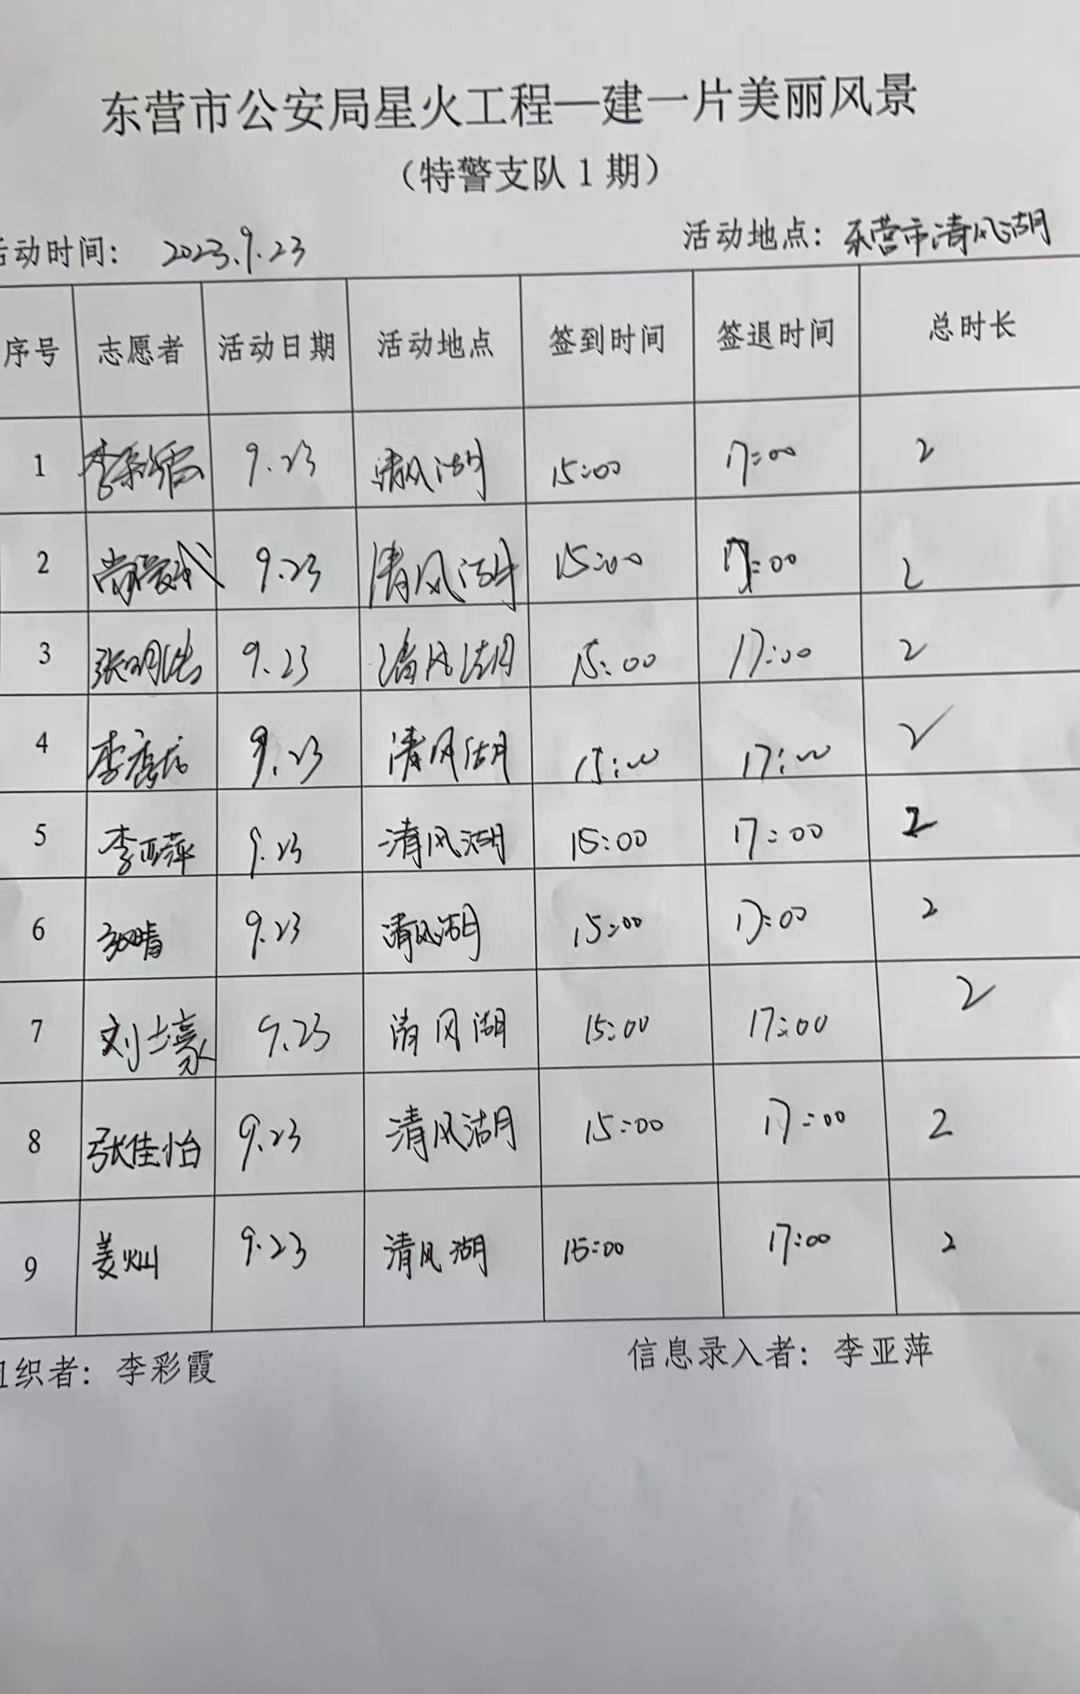 东营市公安局星火工程—建一片美丽风景
（特警支队1期）
活动时间： 2023.9.23 活动地点：东营市清风湖
序号 志愿者 活动日期 活动地点 签到时间 签退时间 总时长
1 李彩霞 9.23 清风湖 15:00 17:00 2
2 9.23 清风湖 15:00 17:00 2
3 张明浩 9.23 清风湖 15:00 17:00 2
4 李 9.23 清风湖 15:00 17:00 2
5 李亚萍 9.23 清风湖 15:00 17:00 2
6 9.23 清风湖 15:00 17:00 2
7 刘士豪 9.23 清风湖 15:00 17:00 2
8 张佳怡 9.23 清风湖 15:00 17:00 2
9 姜灿 9.23 清风湖 15:00 17:00 2
组织者：李彩霞 信息录入者：李亚萍